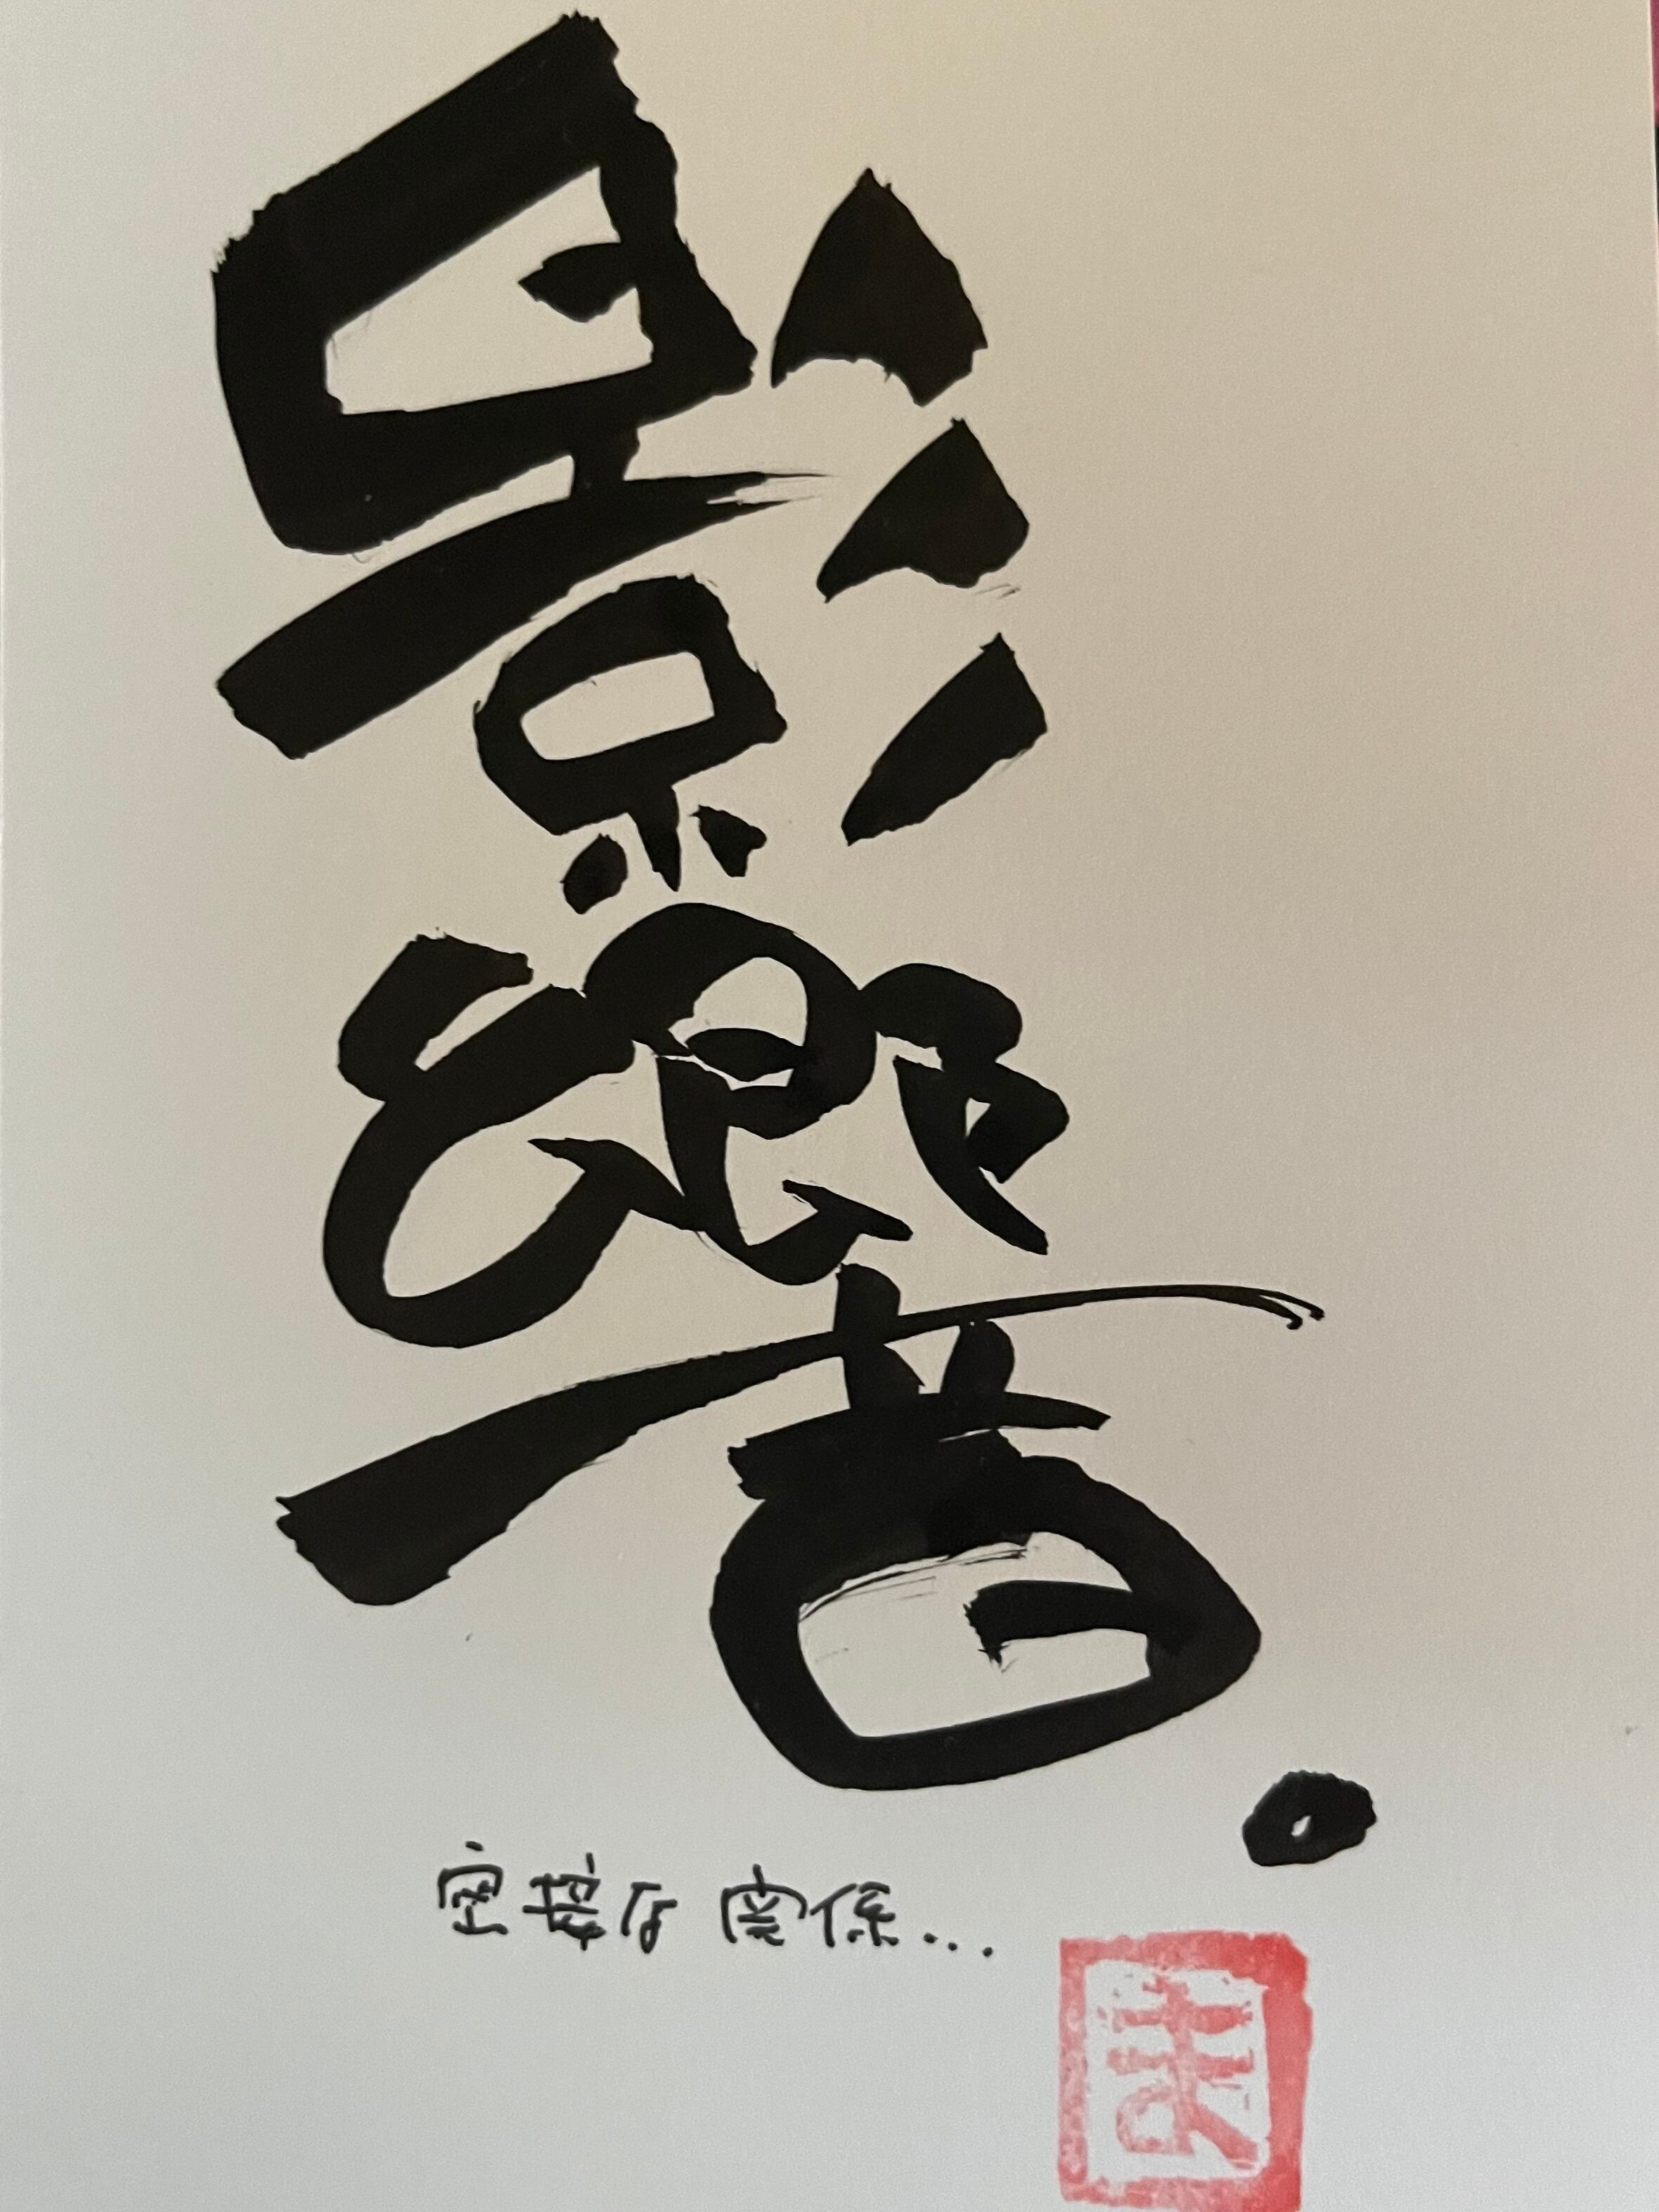 影響。
密接な関係...